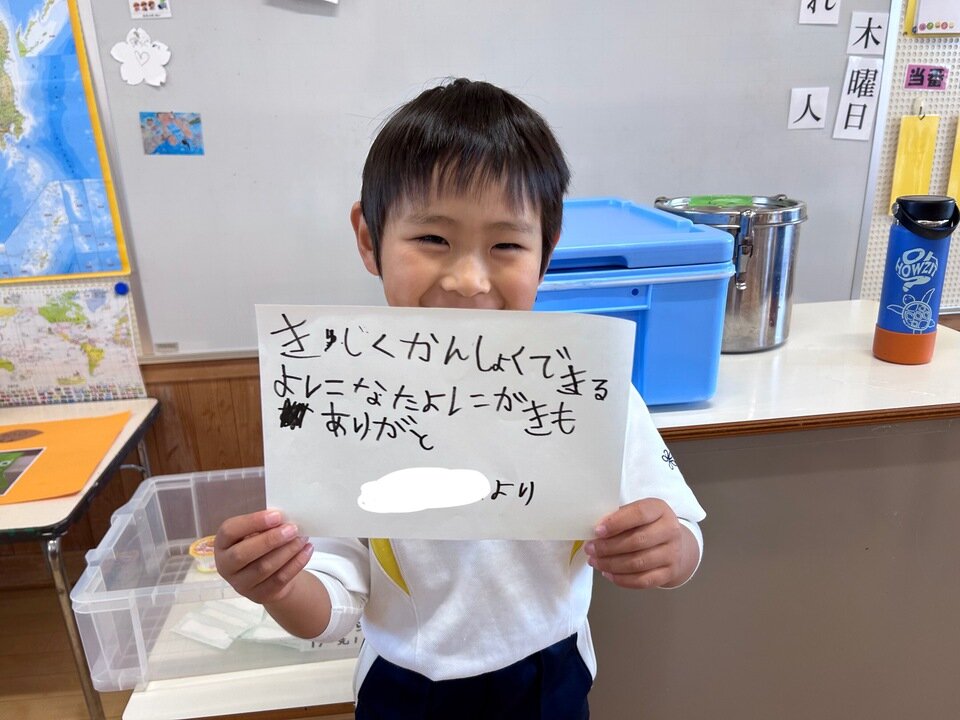 きゅじくかんしょくで
よレニなたよレニがきまる
ありがと きも
より
れ
木
曜
日
人
当番
HOWZIT